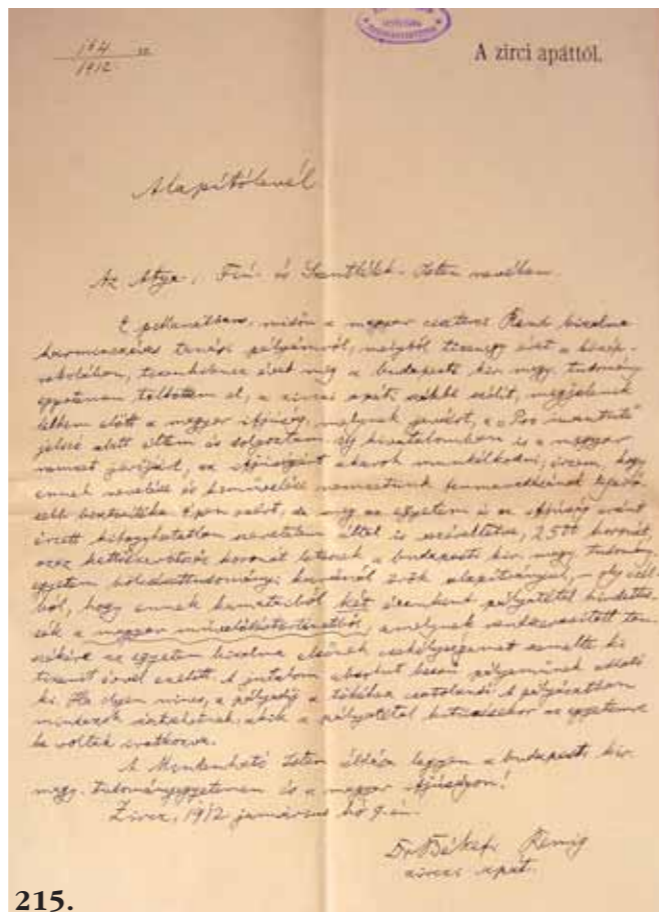 164
1912
A zirci apáttól.
Alapítólevél
Az Atya, Fiú és Szentlélek Isten nevében.
E pillanatban, midőn a magyar cziszterci Rend bizalma
harminczéves tanári pályámról, melyből tizenegy évet a közép-
iskolában, tizenkilencz évet meg a budapesti kir. magy. tudomány
egyetemen töltöttem el, a zirczi apáti székbe szólít, megjelenik
lelkem előtt a magyar ifjúság, melynek javáért, a „Pro iuventute"
jelszó alatt éltem és dolgoztam. Új hivatalomban is a magyar
nemzet javáért, az ifjúságért akarok munkálkodni, érzem, hogy
ennek nevelése és kiművelése nemzetünk fennmaradásának
biztosítéka. Épen azért, de meg az egyetem és az ifjúság iránt
érzett szeretetem által is 2500 koronát,
azaz kettőezerötszáz koronát leteszek a budapesti kir. magy. tudomány-
egyetem bölcsészettudományi karánál örök alapítványul, – oly czél-
ból, hogy ennek kamataiból két évenként pályatétel hirdettes-
sék a magyar művelődéstörténetből, amelynek rendszeresített tan-
székére az egyetem bizalma elsőnek csekélységemet emelte ki
tizenöt évvel ezelőtt. A jutalom abszolut becsű pályaműnek adható
ki. Ha olyan nincs, a pályadíj a tőkéhez csatolandó. A pályázatban
mindazok részt vehetnek, akik a pályatétel kitűzésekor az egyetemre
be voltak iratkozva.
A Mindenható Isten áldása legyen a budapesti kir.
magy. tudományegyetemen és a magyar ifjúságon!
Zircz, 1912 január hó 9-én.
Dr. Békefi Remig
zirczi apát.
215.